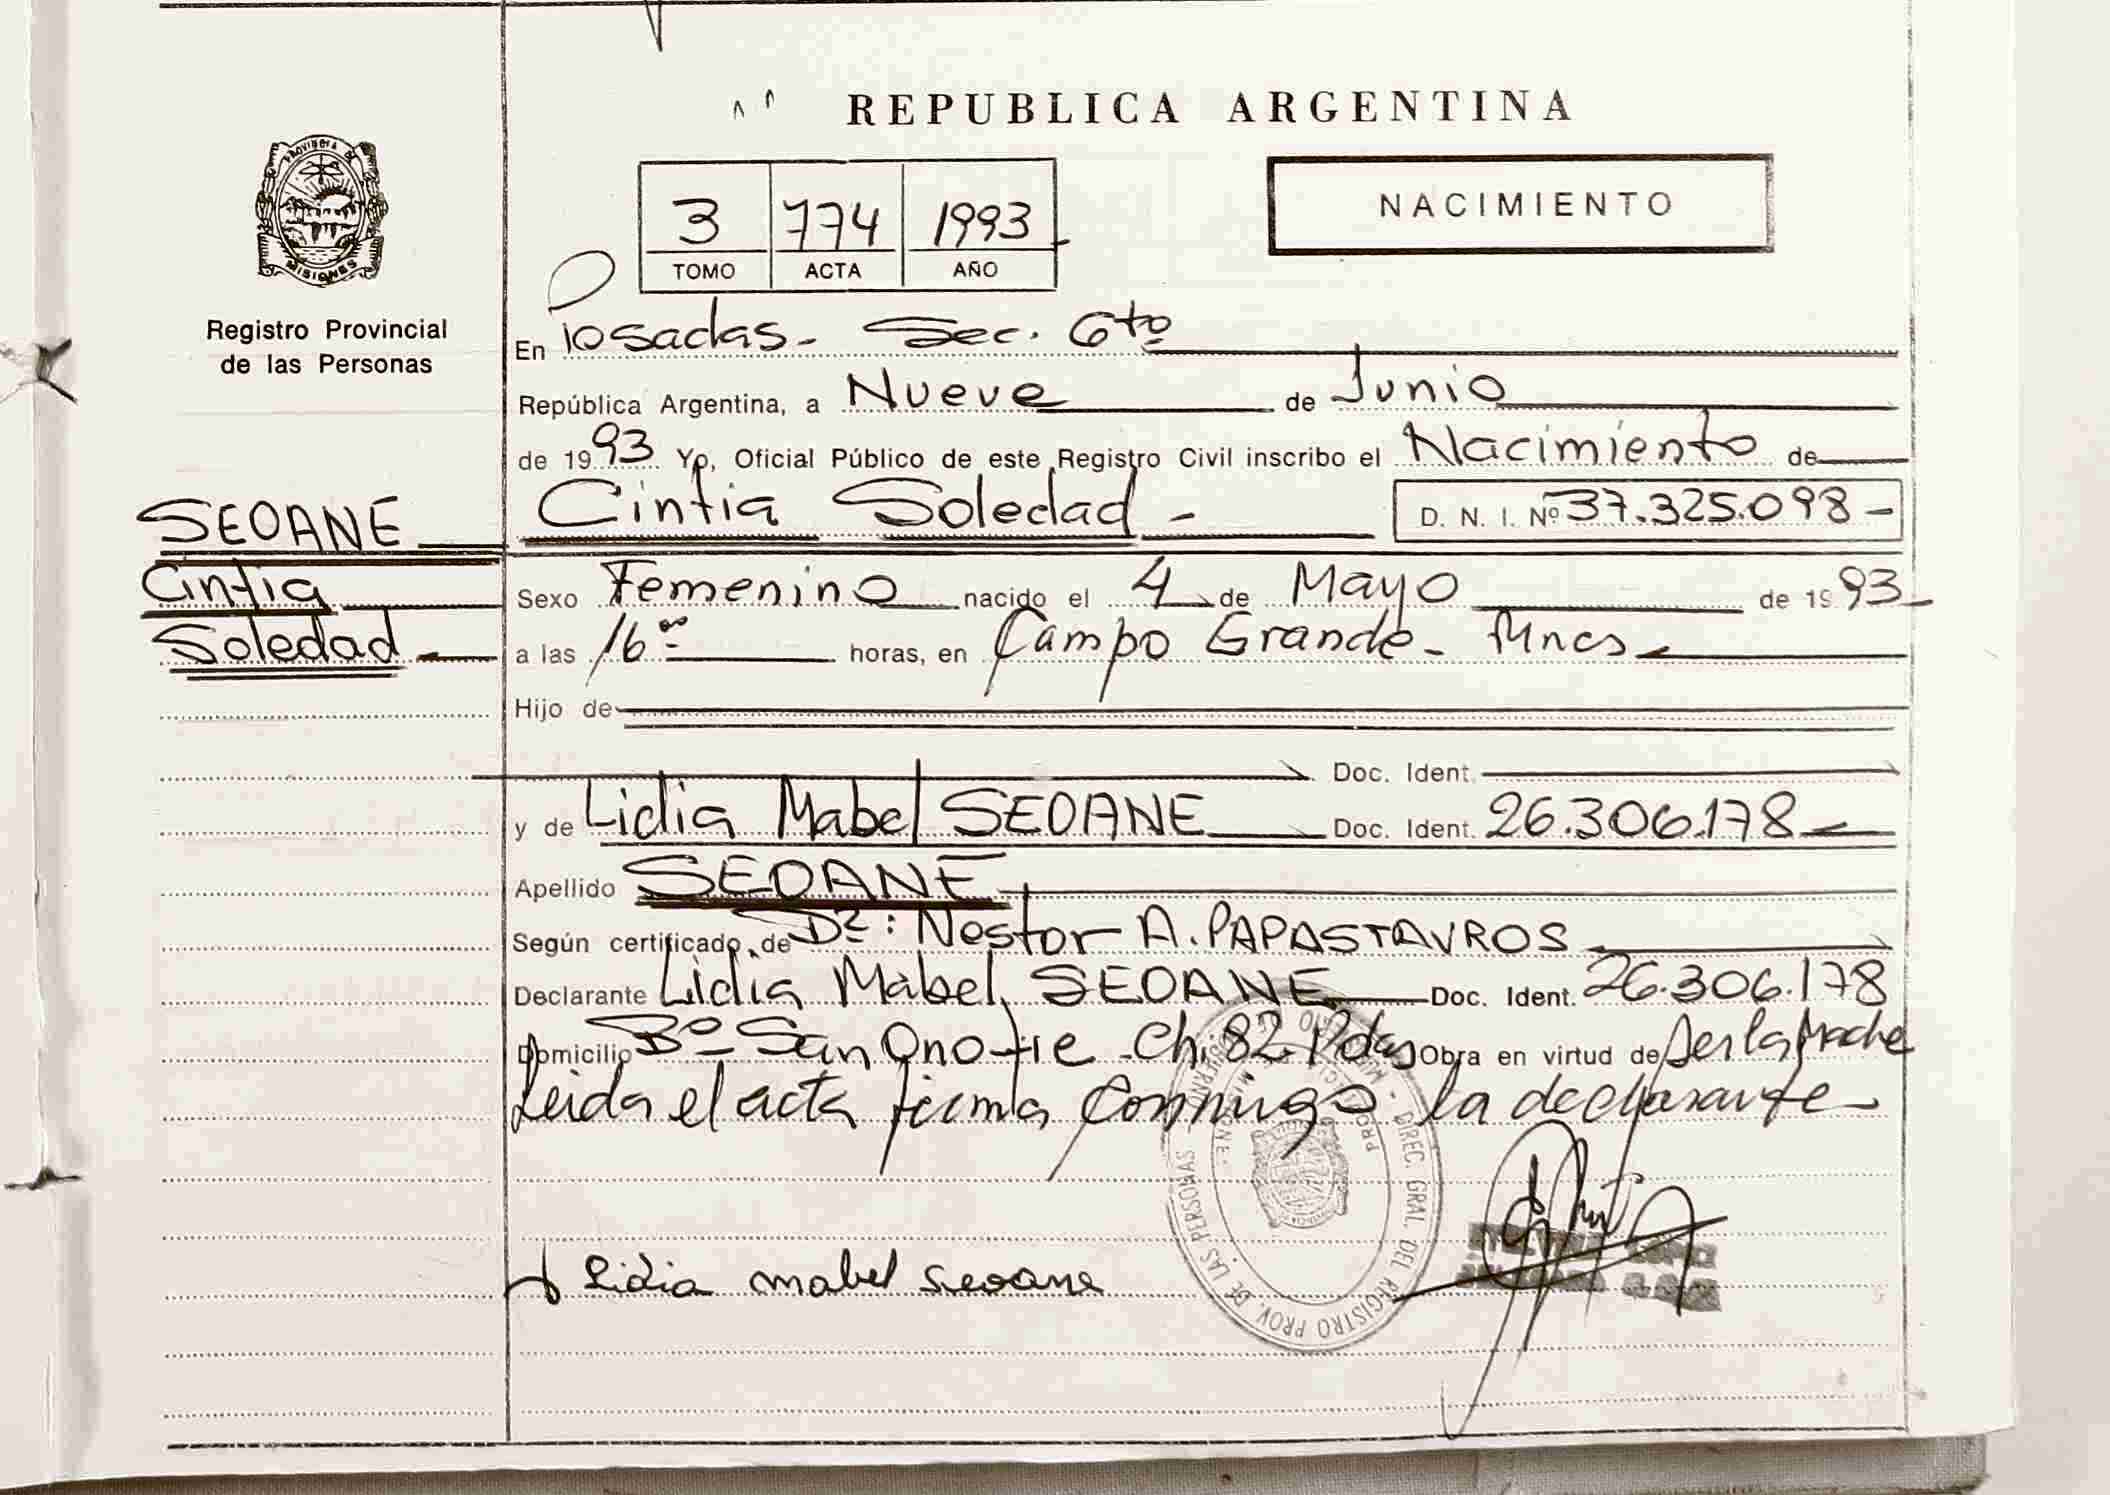 REPUBLICA ARGENTINA
PROVINCIA DE
MISIONES
Registro Provincial
de las Personas
3 774 1993
TOMO ACTA AÑO
NACIMIENTO
En Posadas - Sec. 6to
República Argentina, a Nueve de Junio
de 1993 Yo, Oficial Público de este Registro Civil inscribo el Nacimiento de
SEOANE
Cintia
Soledad
Cintia Soledad - D. N. I. Nº 37.325.098 -
Sexo Femenino nacido el 4 de Mayo de 1993
a las 16 horas, en Campo Grande - Mnes
Hijo de
Doc. Ident.
y de Lidia Mabel SEOANE Doc. Ident. 26.306.178
Apellido SEOANE
Según certificado de Dr: Nestor A. PAPASTAVROS
Declarante Lidia Mabel SEOANE Doc. Ident. 26.306.178
Domicilio Bº San Onofre Ch. 82 Pdas Obra en virtud de Ser la Madre
Leida el acta firma conmigo la declarante
DIREC. GRAL. DEL REGISTRO PROV. DE LAS PERSONAS
Lidia mabel seoane